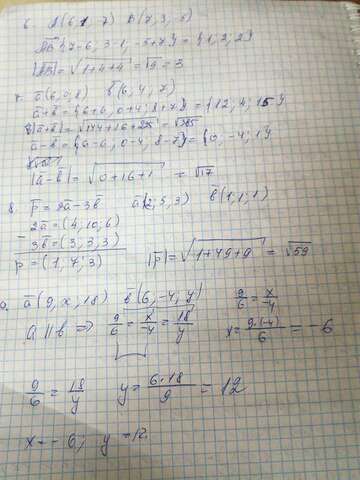 6. A(6,1,-7) B(7,3,-5)
AB{7-6, 3-1, -5+7} = {1,2,2}
|AB|=√1+4+4 = √9 = 3
7. a(6,0,8) b(6,4,7)
a+b={6+6, 0+4; 8+7}={12;4;15}
|a+b|=√144+16+225=√385
a-b={6-6, 0-4; 8-7}={0,-4;1}
|a-b|=√0+16+1 = √17
8. p=2a-3b a(2;5,3) b(1,1;1)
2a=(4,10,6)
- 3b=(3,3,3)
p=(1,7;3) |p|=√1+49+9 = √59
9. a(9,x,18) b(6,-4;y) 9/6=x/-4
a||b => 9/6=x/-4=18/y x=9·(-4)/6=-6
9/6=18/y y=6·18/9=12
x=-6; y=12.